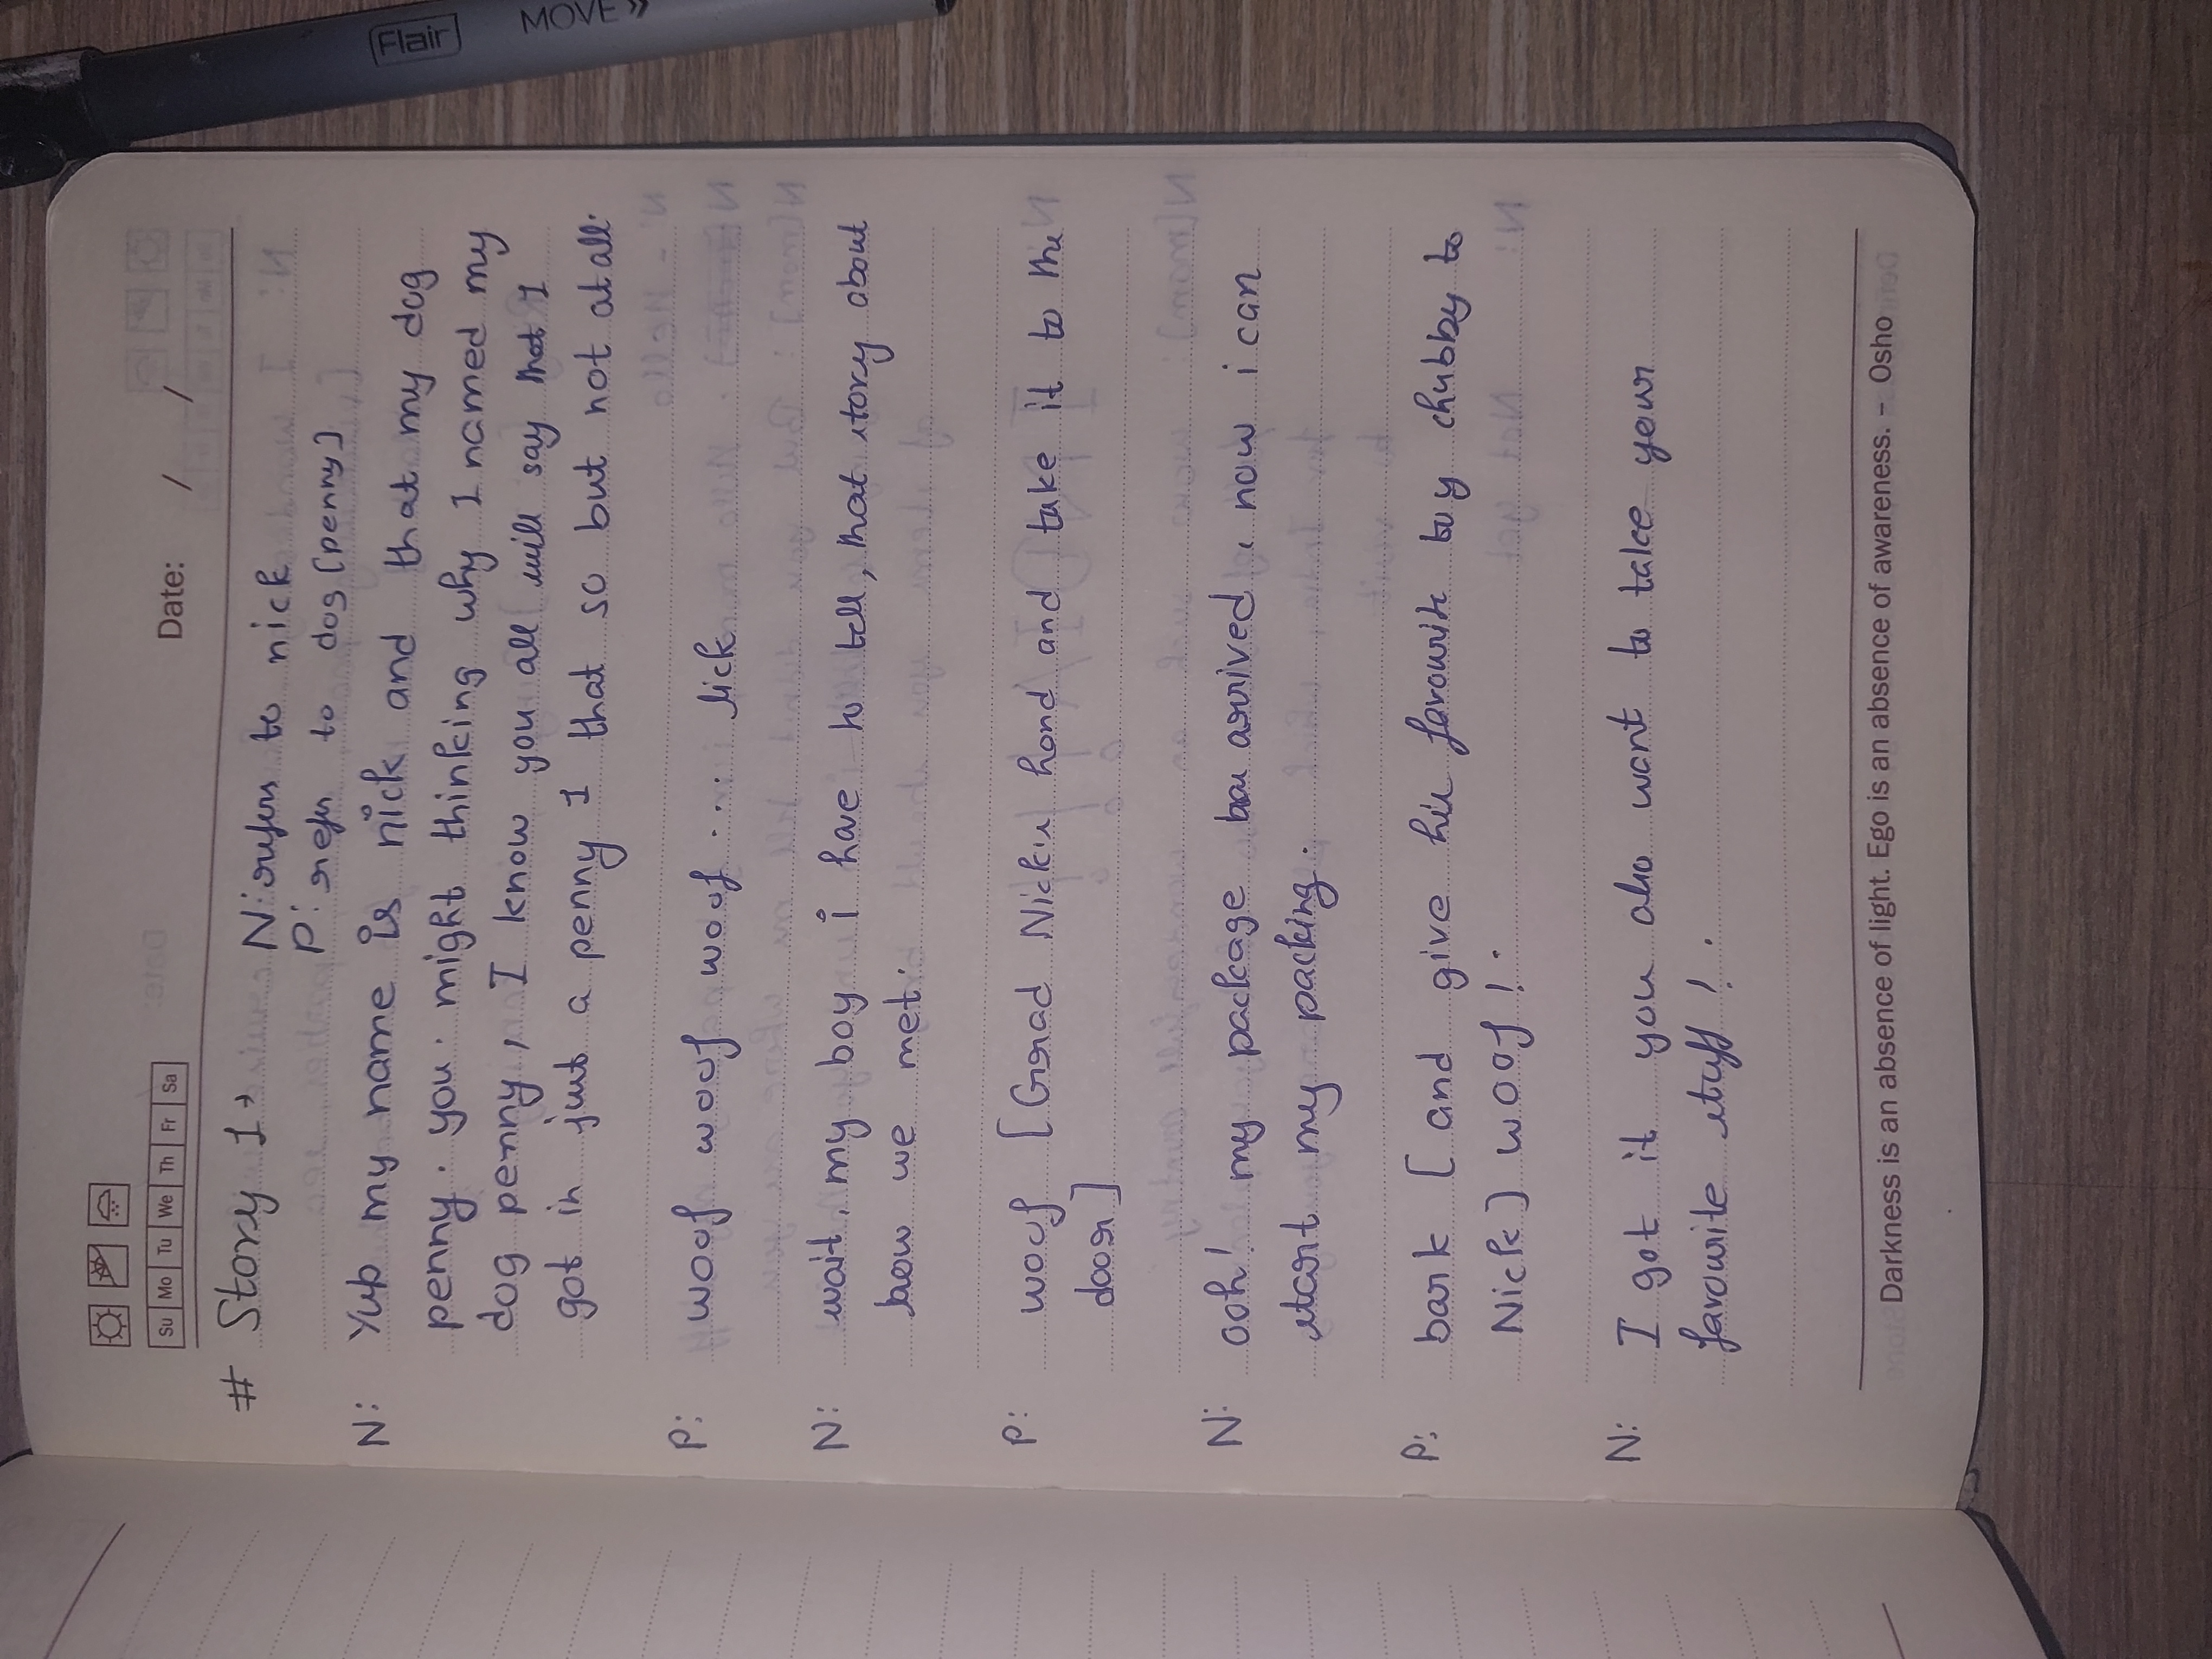 Su Mo Tu We Th Fr Sa
Date: / /
# Story 1→
N: refers to nick
P: refer to dog [penny]
N: Yup my name is nick and that my dog
penny. you might thinking why I named my
dog penny, I know you all will say that I
got in just a penny I that so but not at all.
P: woof woof woof .... lick
N: wait, my boy i have to tell, that story about
how we met.
P: woof [Grad Nick's hand and take it to the
door]
N: ooh! my package has arrived, now i can
start my packing.
P: bark [and give his favourite toy chubby to
Nick] woof!.
N: I got it you also want to take your
favourite stuff!.
Darkness is an absence of light. Ego is an absence of awareness. – Osho
Flair
MOVE »